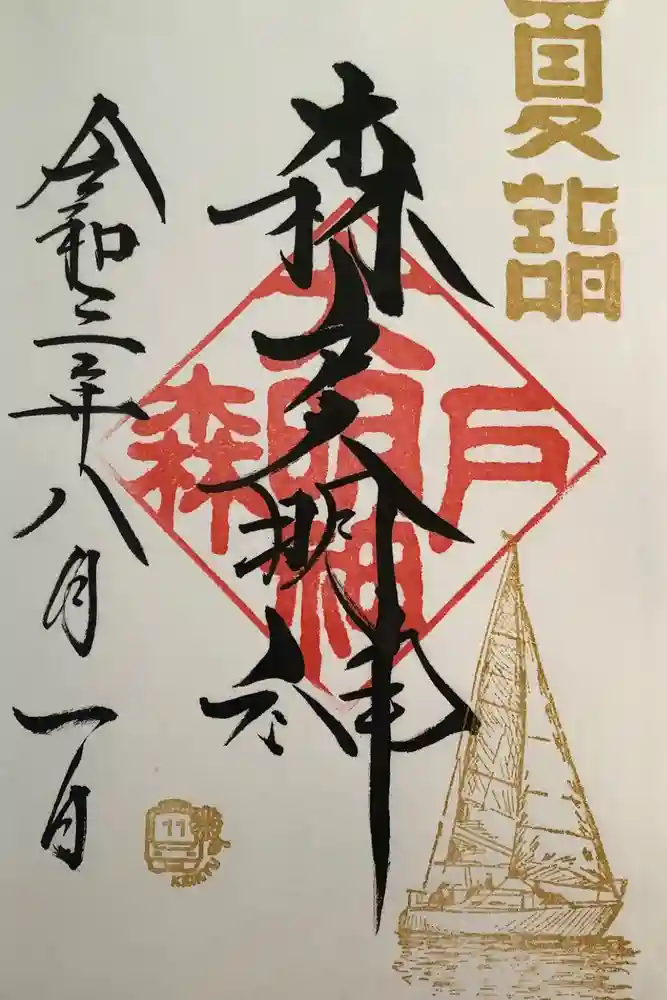 夏詣
森戸大明神
森戸
大明神
令和三年八月一日
11
KEIKYU